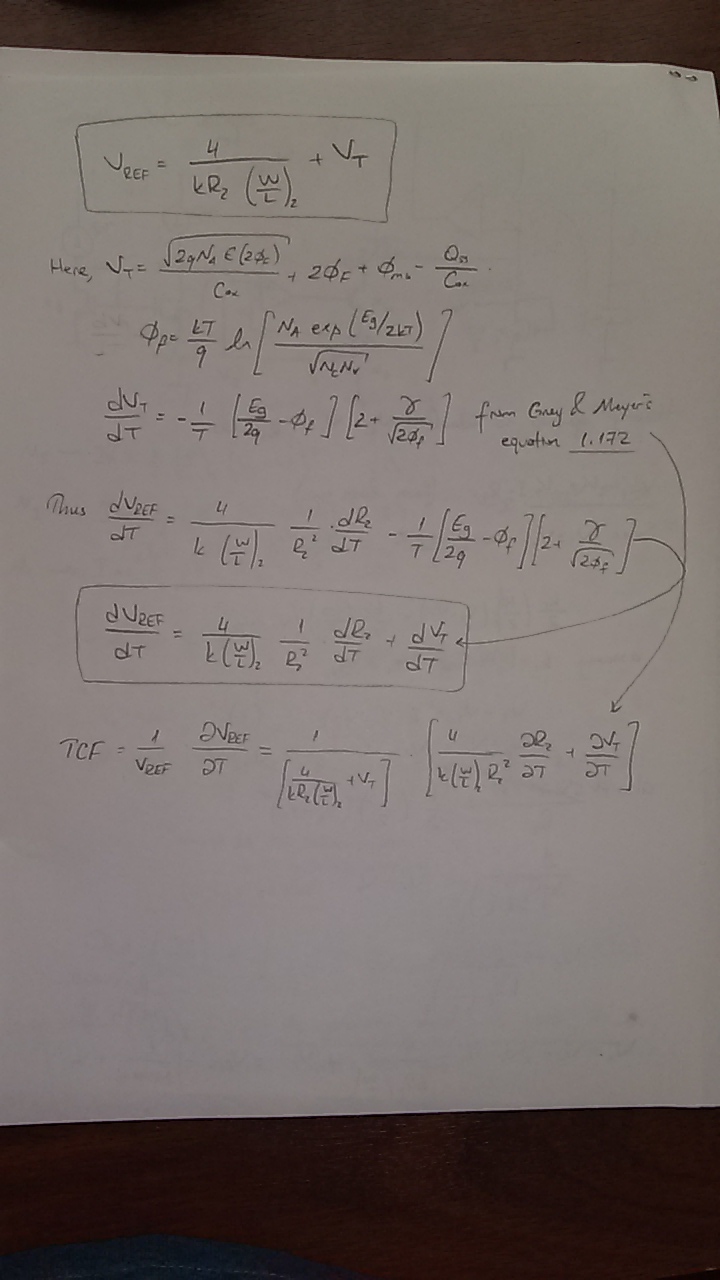 V_REF = 4 / (kR₂ (W/L)₂) + V_T
Here, V_T = √(2qN_A ϵ(2ϕ_F)) / C_ox + 2ϕ_F + ϕ_ms - Q_ss / C_ox .
ϕ_f = kT/q ln [ N_A exp(Eg/2kT) / √(N_c N_v) ]
dV_T/dT = - 1/T [ Eg/2q - ϕ_f ] [ 2 + γ/√(2ϕ_f) ] from Grey & Meyer's
equation 1.172
Thus dV_REF/dT = 4 / (k (W/L)₂) 1/R₂² · dR₂/dT - 1/T [ Eg/2q - ϕ_f ] [ 2 + γ/√(2ϕ_f) ]
dV_REF/dT = 4 / (k (W/L)₂) 1/R₂² dR₂/dT + dV_T/dT
TCF = 1/V_REF ∂V_REF/∂T = 1 / [ 4/(kR₂(W/L)₂) + V_T ] · [ 4/(k(W/L)₂ R₂²) ∂R₂/∂T + ∂V_T/∂T ]